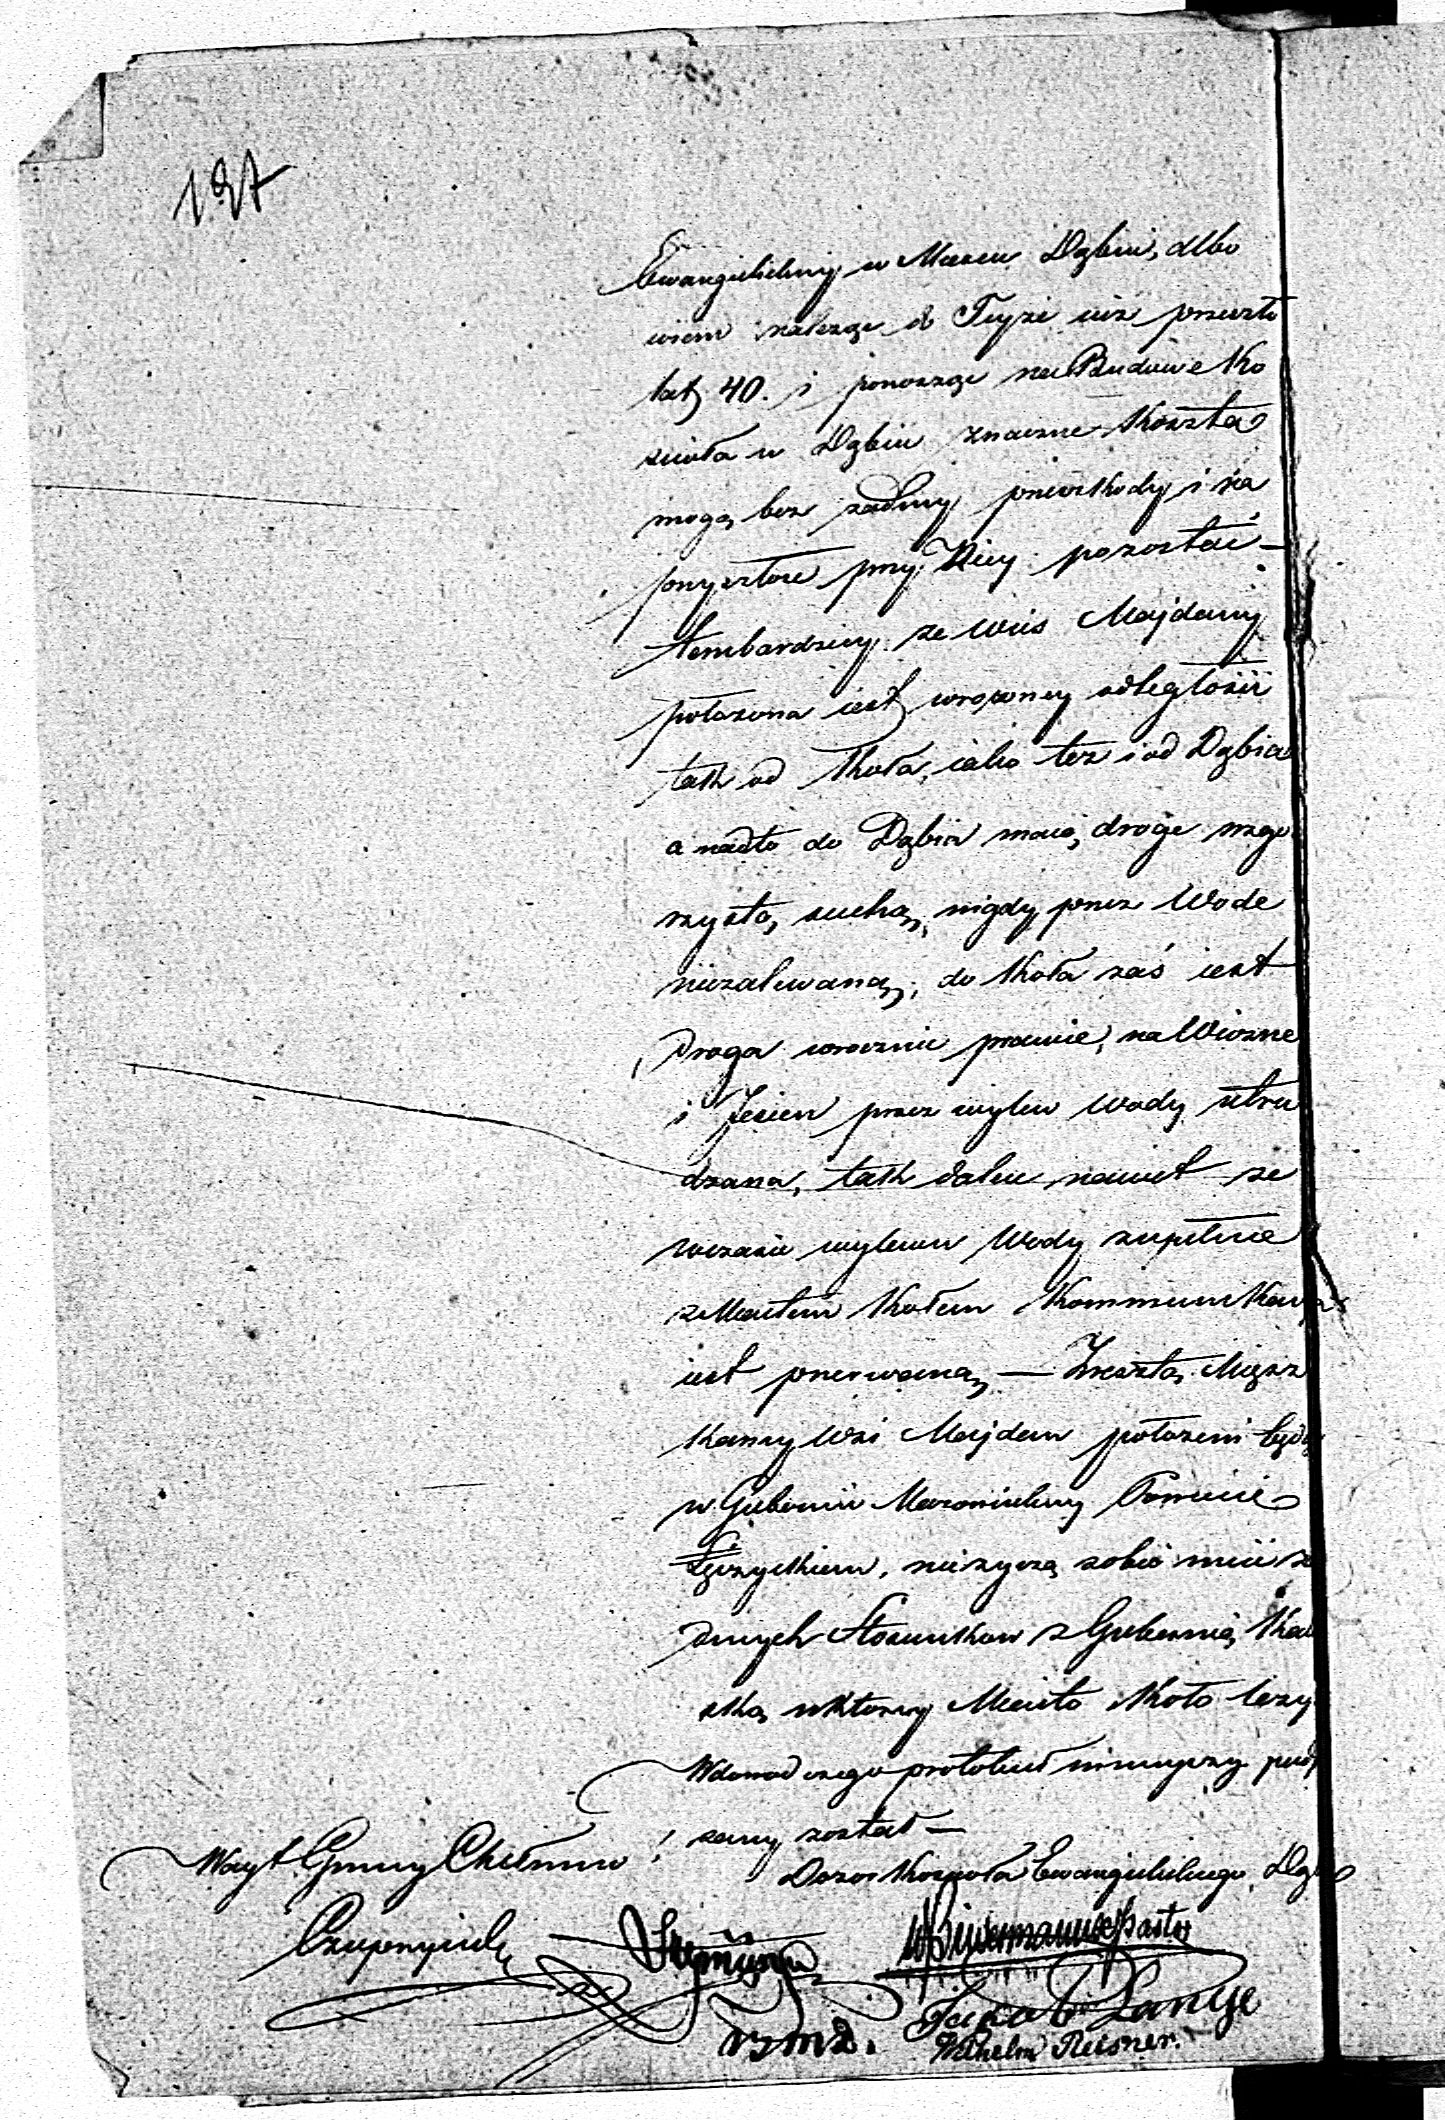 197
Ewangielickiey w Mieście Dąbiu, albo
wiem należąc do Teyże iuż przeszło
lat 40. i ponosząc na Budowe Ko
scioła w Dąbiu znaczne Koszta
mogą bez żadney przeszkody i na
przyszłość przy Niey pozostać —
tembardziey że Wieś Majdany
położona iest w rowney odległości
tak od Koła, iako też i od Dąbia
a nadto do Dąbia maią droge wzgo
rzystą, suchą, nigdy przez Wode
niezalewaną, do Koła zaś iest
Droga corocznie prawie, na Wiosne
i Jesien przez wylew Wody utru
dzana, tak dalece nawet że
w czasie wylewu Wody zupełnie
z Miastem Kołem Kommunikacya
iest przerwana, — Zresztą Miesz
kancy Wsi Majdan położeni będąc
w Gubernii Mazowieckiey Powiecie
Łęczyckiem, nieżyczą sobie mieć ża
dnych Stosunkow z Gubernią Kali
ską w ktorey Miasto Koło leży
W dowod czego protokuł ninieyszy pod
sany został —
Dozor Kościoła Ewangielickiego Dąbie
Woyt Gminy Chełmno
Jakob Lange
Wilhelm Reisner.